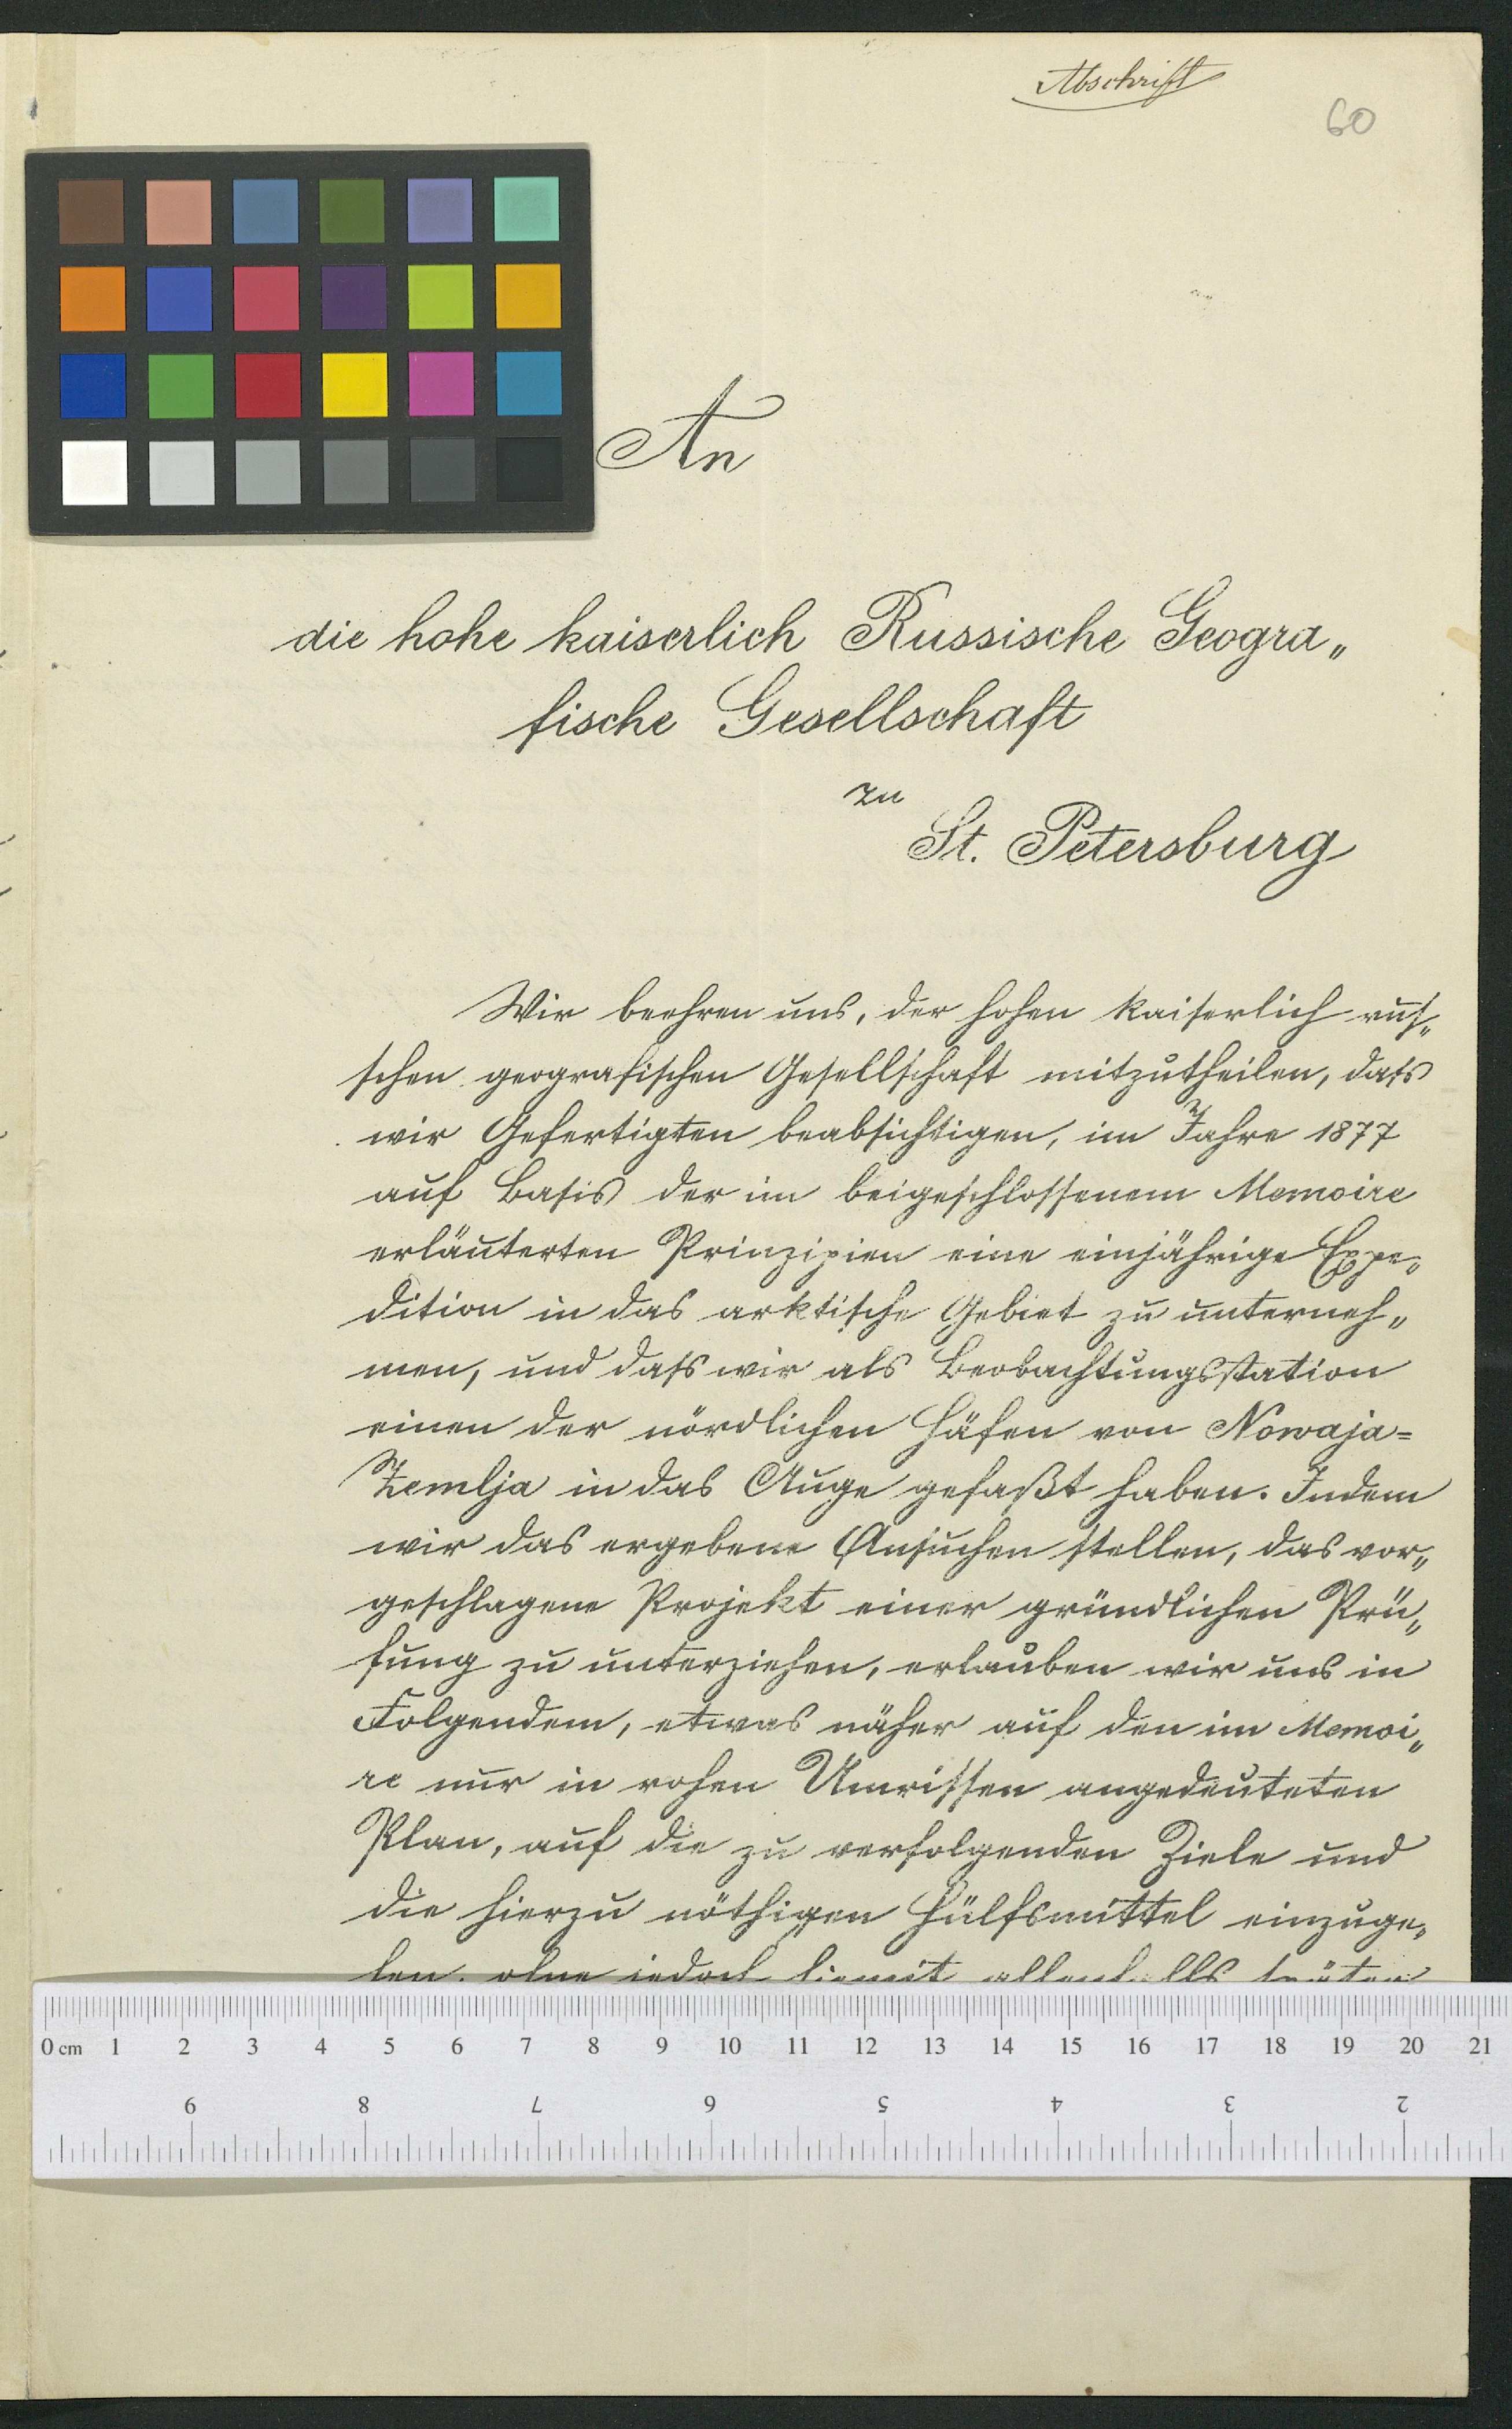 Abschrift
60
An
die hohe kaiserlich Russische Geogra„
fische Gesellschaft
zu
St. Petersburg
Wir beehren uns, der hohen kaiserlich rus„
schen geografischen Gesellschaft mitzutheilen, dass
wir Gefertigten beabsichtigen, im Jahre 1877
auf Basis der im beigeschlossenem Memoire
erläuterten Prinzipien eine einjährige Expe„
dition in das arktische Gebiet zu unterneh„
men, und dass wir als Beobachtungsstation
einen der nördlichen Häfen von Nowaja=
Zemlja in das Auge gefaßt haben. Indem
wir das ergebene Ansuchen stellen, das vor„
geschlagene Projekt einer gründlichen Prü„
fung zu unterziehen, erlauben wir uns in
Folgendem, etwas näher auf den im Memoi„
re nur in rohen Umrissen angedeuteten
Plan, auf die zu verfolgenden Ziele und
die hierzu nöthigen Hülfsmittel einzuge„
hen, ohne jedoch hiemit allenfalls
0 cm 1 2 3 4 5 6 7 8 9 10 11 12 13 14 15 16 17 18 19 20 21
9 8 7 6 5 4 3 2